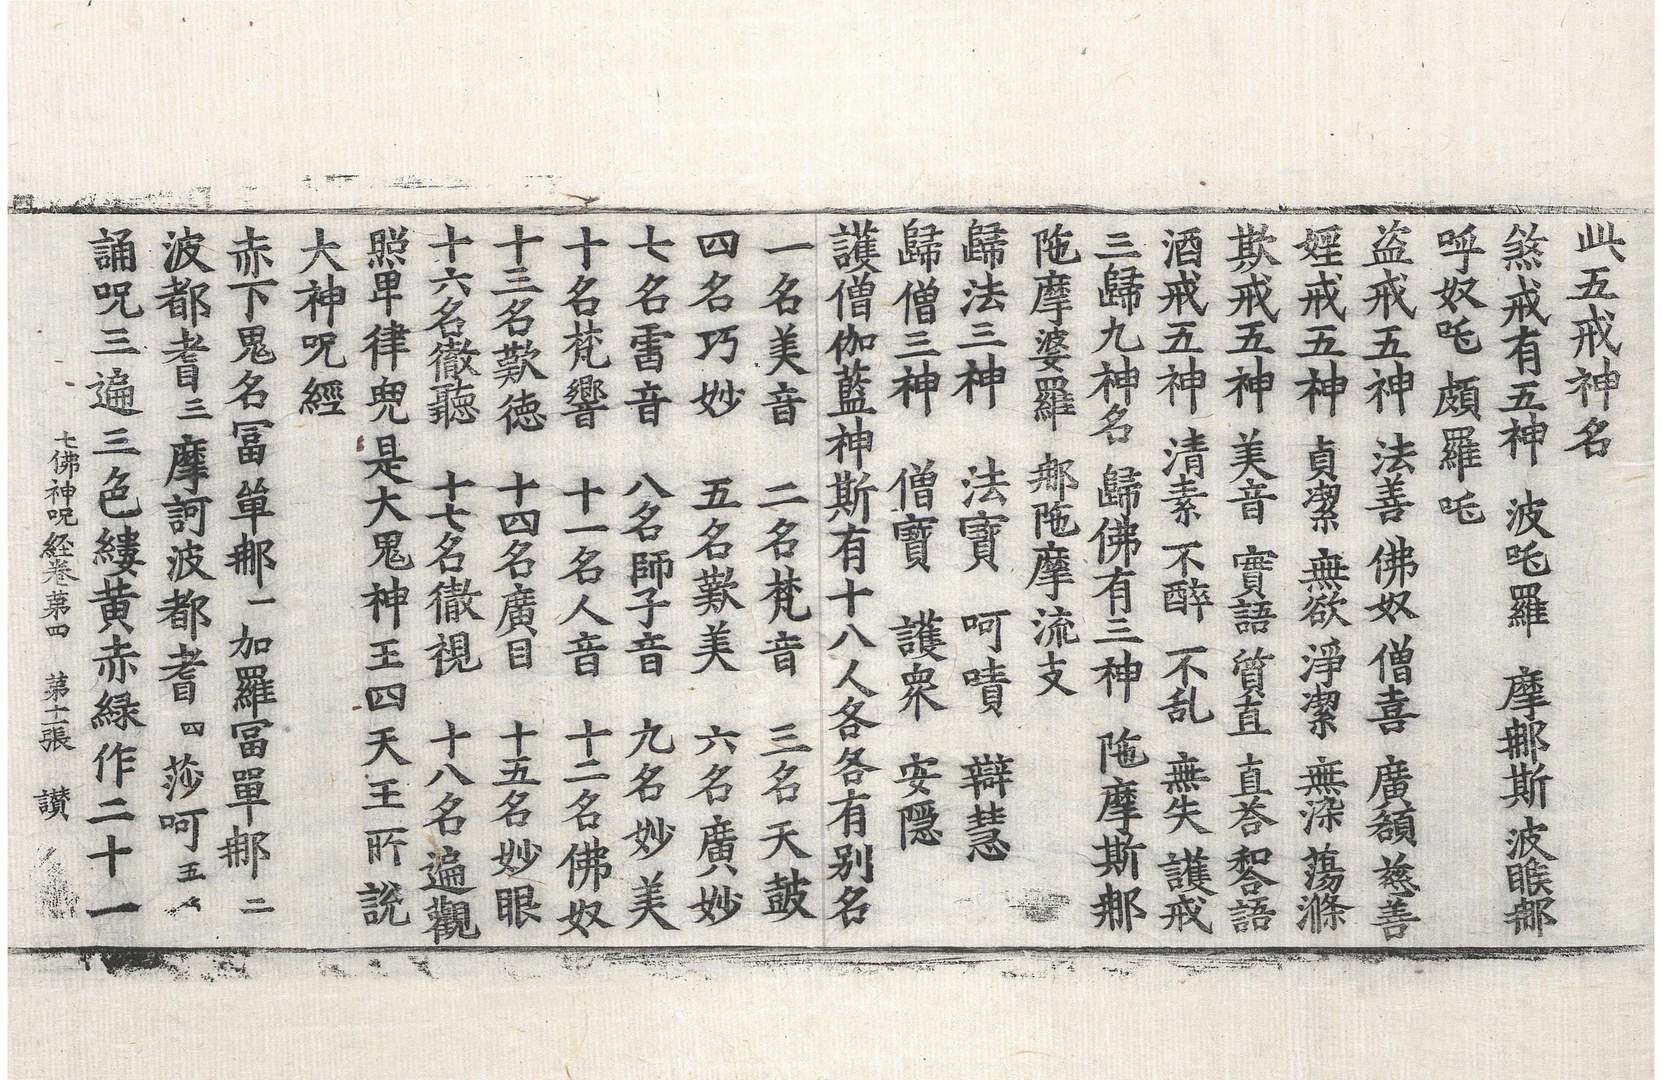 此五戒神名
煞戒有五神 波吒羅 摩那斯 波睺那
呼奴吒 頗羅吒
盗戒五神 法善 佛奴 僧喜 廣額 慈善
婬戒五神 貞潔 無欲 淨潔 無染 蕩滌
欺戒五神 美音 實語 質直 直荅 和合語
酒戒五神 清素 不醉 不乱 無失 護戒
三歸九神名 歸佛有三神 陁摩斯那
陁摩婆羅 那陁摩流支
歸法三神 法寶 呵嘖 辯慧
歸僧三神 僧寶 護衆 安隱
護僧伽藍神斯有十八人各各有别名
一名美音 二名梵音 三名天鼓
四名巧妙 五名歎美 六名廣妙
七名雷音 八名師子音 九名妙美
十名梵響 十一名人音 十二名佛奴
十三名歎德 十四名廣目 十五名妙眼
十六名徹聽 十七名徹視 十八名遍觀
照卑律㒵是大鬼神王四天王所說
大神呪經
赤下鬼名冨單那一加羅冨單那二
波都耆三摩訶波都耆四莎呵五
誦呪三遍三色縷黄赤緑作二十一
七佛神呪経卷苐四 苐十二張 讃